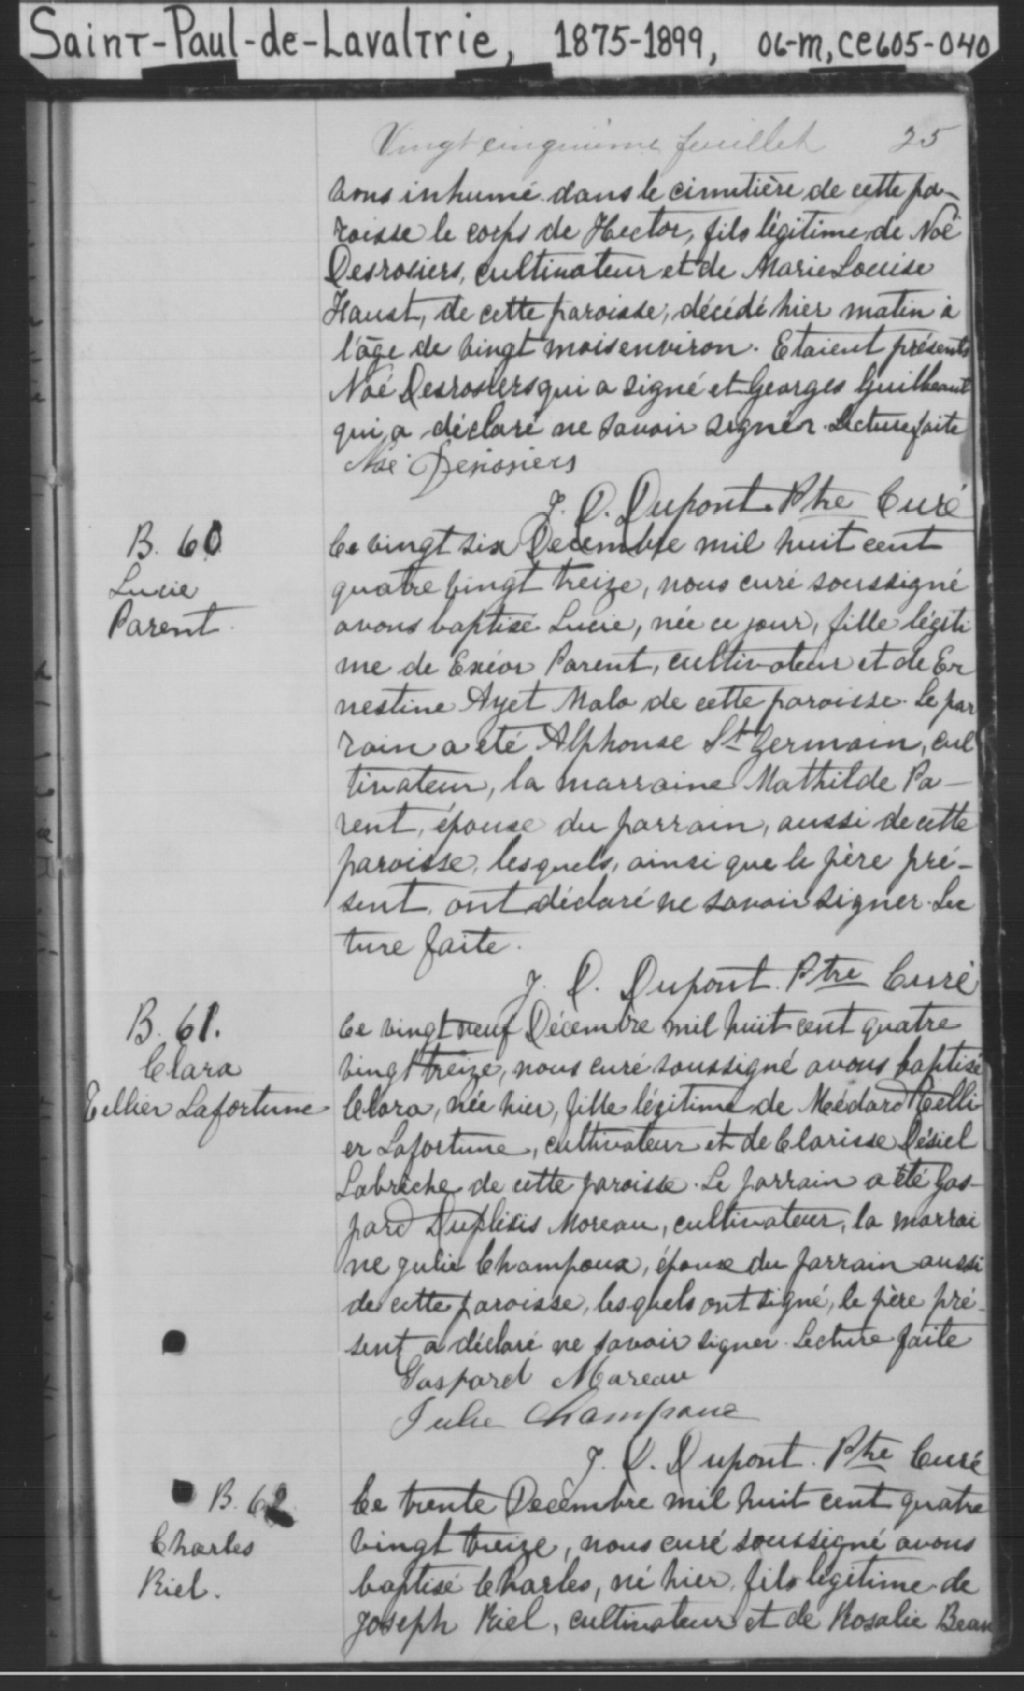 Saint-Paul-de-Lavaltrie, 1875-1899, 06-M, CE605-040
Vingt cinquième feuillet 25
vons inhumé dans le cimetière de cette pa-
roisse le corps de Hector, fils légitime de Noé
Desrosiers, cultivateur et de Marie Louise
de cette paroisse, décédé hier matin à
l'âge de vingt mois environ. Etaient présents
Noé Desrosiers qui a signé et Georges Guilbeault
qui a déclaré ne savoir signer. Lecture faite
Noé Desrosiers
J. O. Dupont. Ptre Curé
B. 60
Lucie
Parent
Ce vingt six Décembre mil huit cent
quatre vingt treize, nous curé soussigné
avons baptisé Lucie, née ce jour, fille légiti
me de Exéor Parent, cultivateur et de Er
nestine Ayet Malo de cette paroisse. Le par
rain a été Alphonse St Germain, cul
tivateur, la marraine Mathilde Pa-
rent, épouse du parrain, aussi de cette
paroisse, lesquels, ainsi que le père pré-
sent, ont déclaré ne savoir signer. Lec
ture faite.
J. O. Dupont. Ptre Curé
B. 61.
Clara
Tellier Lafortune
Ce vingt neuf Décembre mil huit cent quatre
vingt treize, nous curé soussigné avons baptisé
Clara, née hier, fille légitime de Médard Telli
er Lafortune, cultivateur et de Clarisse Désiel
Labrèche de cette paroisse. Le parrain a été Gas-
pard Duplisis Moreau, cultivateur, la marrai
ne Julie Champoux, épouse du parrain aussi
de cette paroisse, lesquels ont signé, le père pré-
sent a déclaré ne savoir signer. Lecture faite
Gaspard Mareau
Julie Champoux
J. O. Dupont. Ptre Curé
B. 62
Charles
Riel.
Ce trente Décembre mil huit cent quatre
vingt treize, nous curé soussigné avons
baptisé Charles, né hier, fils légitime de
Joseph Riel, cultivateur et de Rosalie Beau